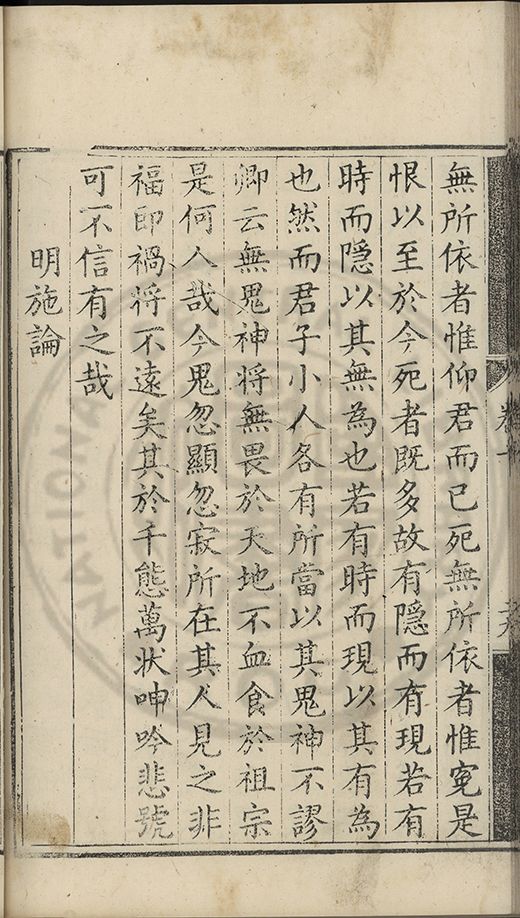 無所依者惟仰君而已死無所依者惟寃是
恨以至於今死者既多故有隱而有現若有
時而隱以其無為也若有時而現以其有為
也然而君子小人各有所當以其鬼神不謬
卿云無鬼神將無畏於天地不血食於祖宗
是何人哉今鬼忽顯忽寂所在其人見之非
福即禍将不遠矣其於千態萬状呻吟悲號
可不信有之哉
明施論